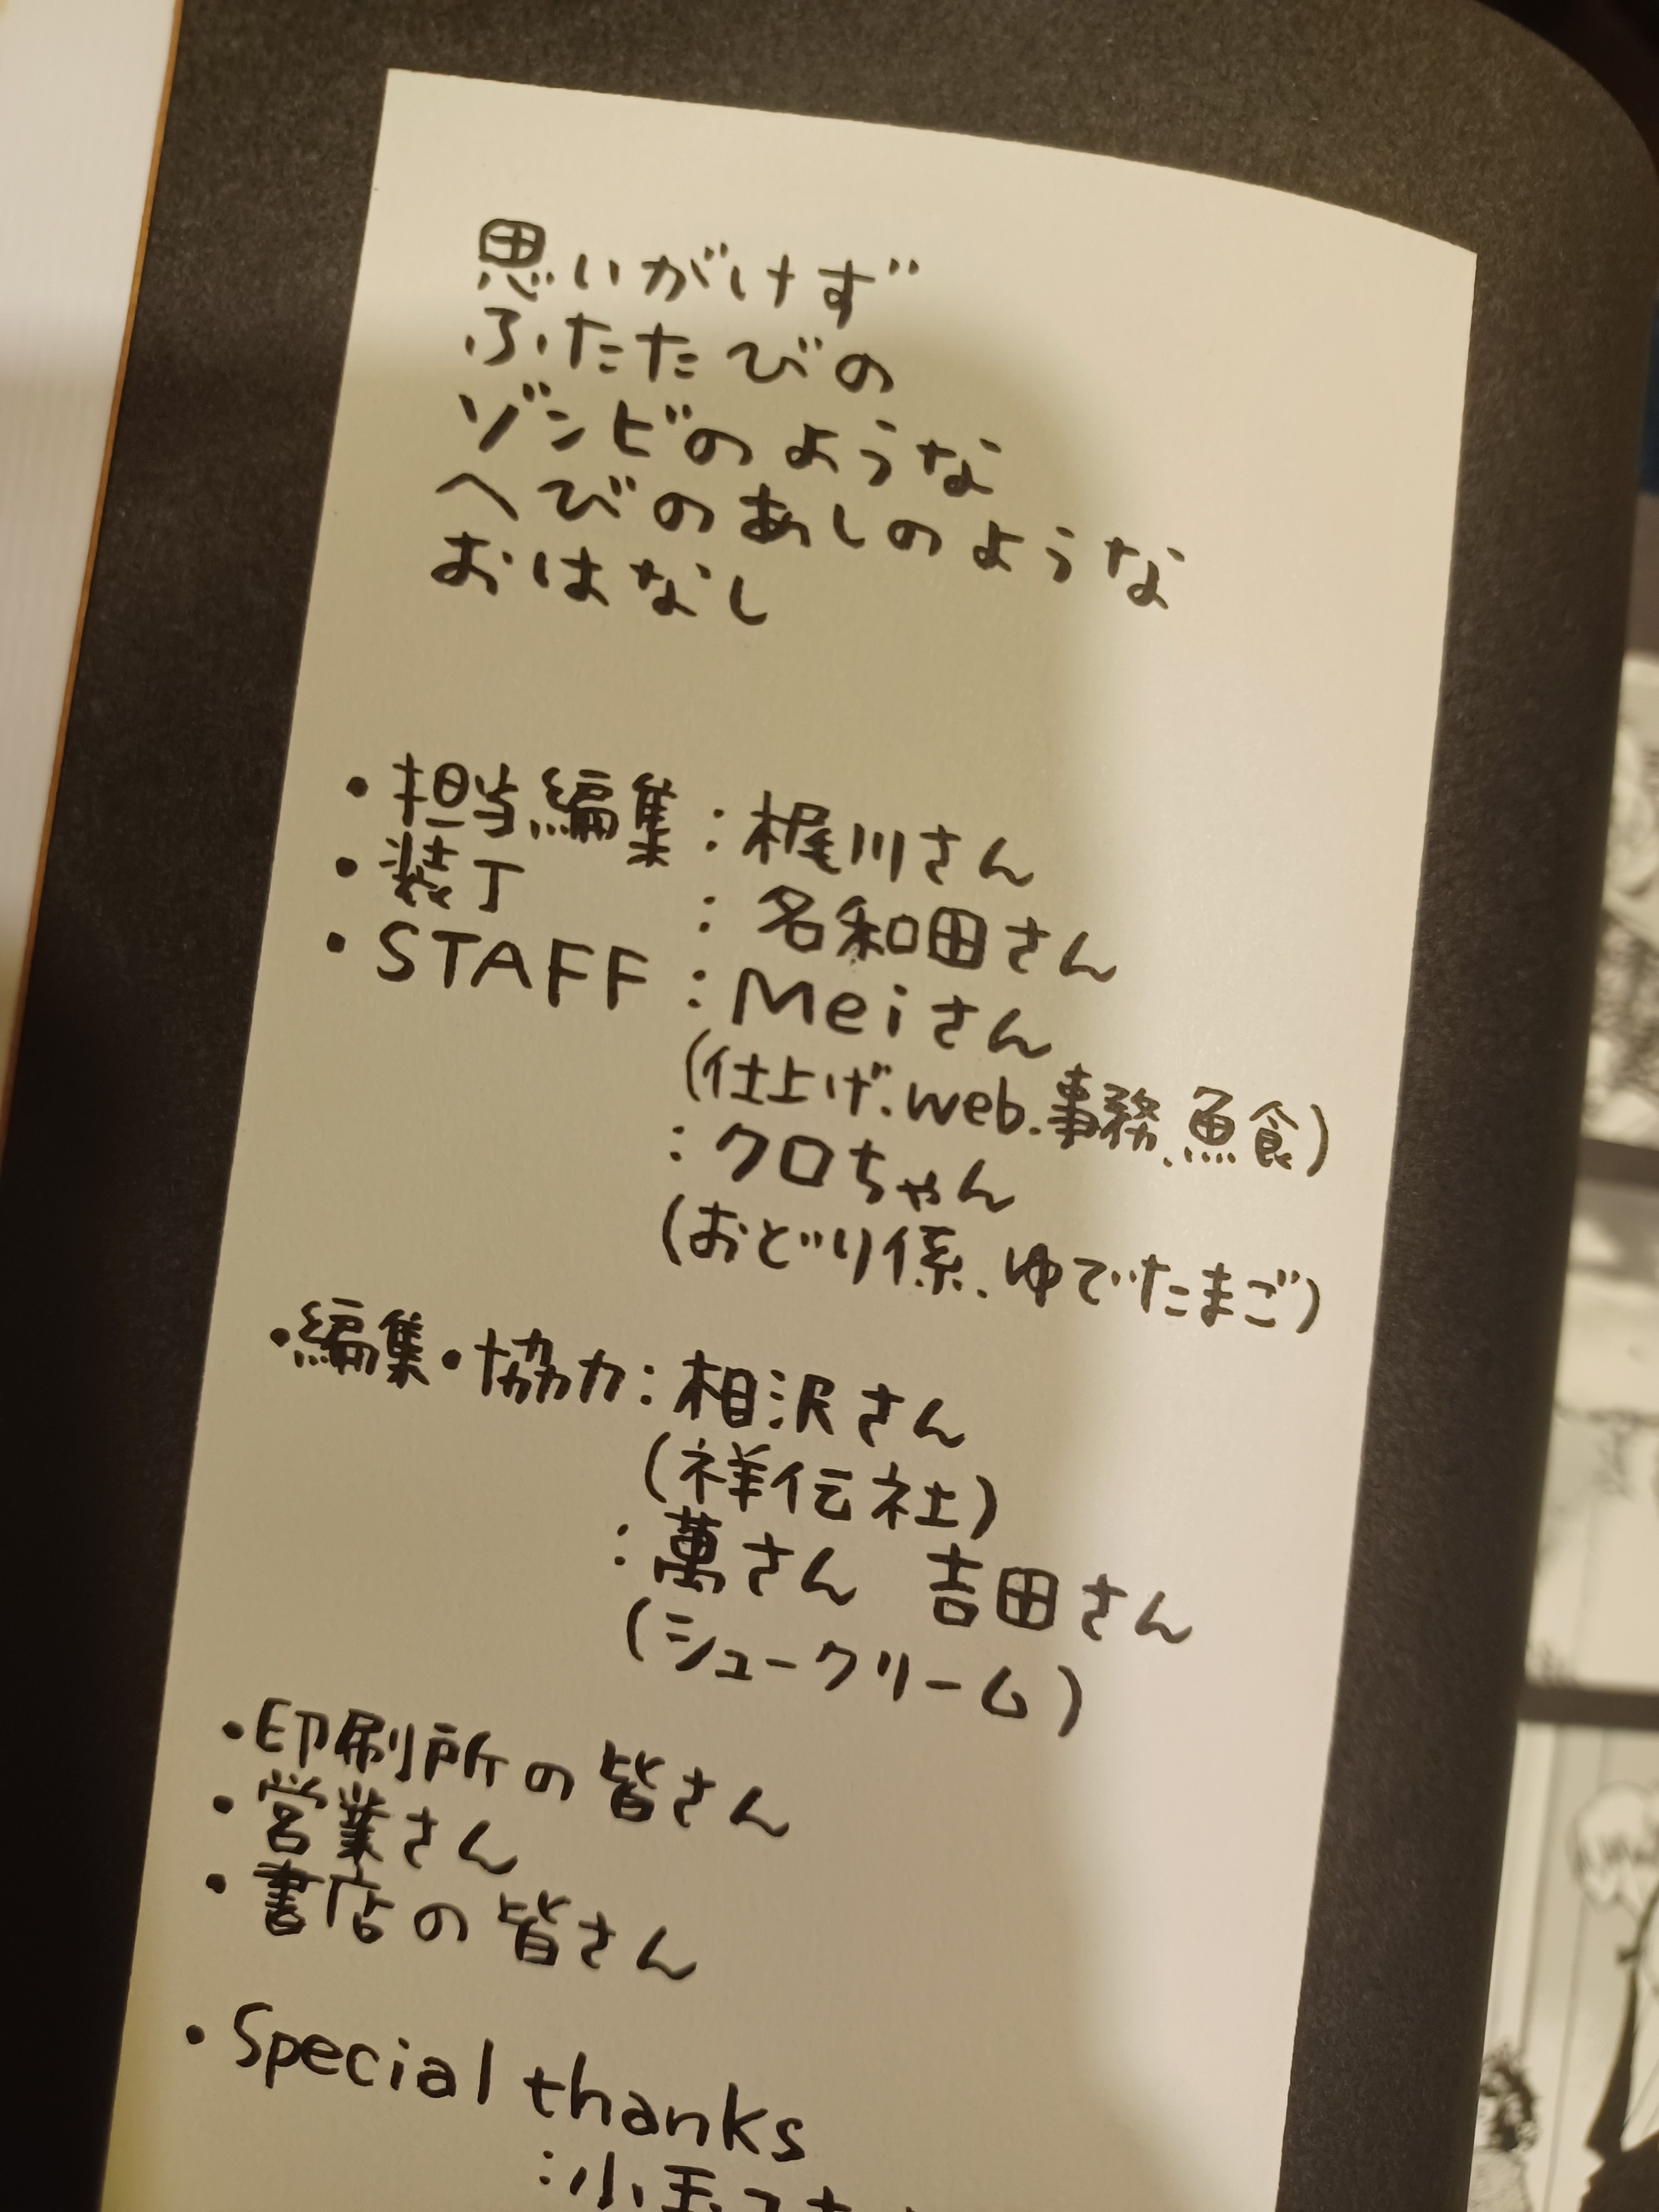 思いがけず
ふたたびの
ゾンビのような
へびのあしのような
おはなし
・担当編集：梶川さん
・装丁：名和田さん
・STAFF：Meiさん
(仕上げ.web.事務.魚食)
：クロちゃん
(おどり係.ゆでたまご)
・編集・協力：相沢さん
(祥伝社)
：萬さん 吉田さん
(シュークリーム)
・印刷所の皆さん
・営業さん
・書店の皆さん
・Special thanks
：小玉